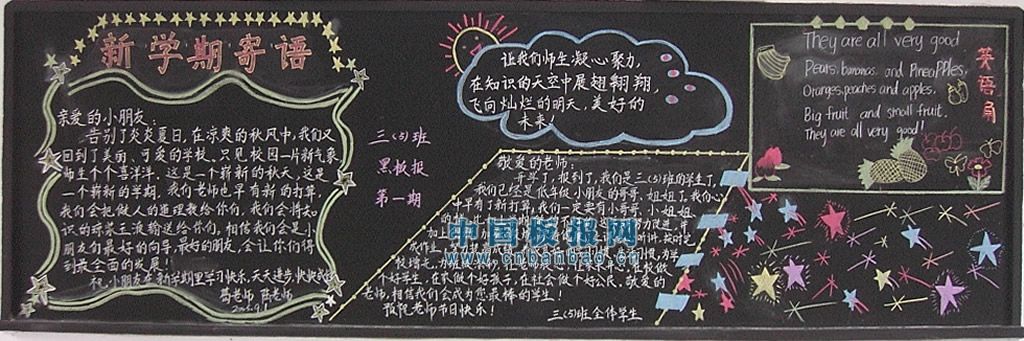 新学期寄语
亲爱的小朋友：
告别了炎炎夏日，在凉爽的秋风中，我们又
回到了美丽、可爱的学校。只见校园一片新气象
师生个个喜洋洋。这是一个崭新的秋天，这是
一个崭新的学期，我们老师也早有新的打算，
我们会把做人的道理教给你们，我们会将知
识的琼浆玉液输送给你们，相信我们会是小
朋友们最好的向导，最好的朋友，会让你们得
到最全面的发展！
祝：小朋友在新学期里学习快乐，天天进步，快快
三(5)班
黑板报
第一期
让我们师生凝心聚力，
在知识的天空中展翅翱翔，
飞向灿烂的明天，美好的
未来！
敬爱的老师：
开学了，报到了，我们是三(5)班的学生了，
我们已经是低年级小朋友的哥哥、姐姐了，我们心
中早有了新打算，我们一定要有小哥哥、小姐姐、
个好学生，在家做个好孩子，在社会做个好公民，敬爱的
老师，相信我们会成为您最棒的学生！
预祝老师节日快乐！
三(5)班全体学生
They are all very good
Pears, bananas, and Pineapples,
Oranges, peaches and apples.
Big fruit and small fruit.
They are all very good!
英语角
中国板报网
www.cnbanbao.cn